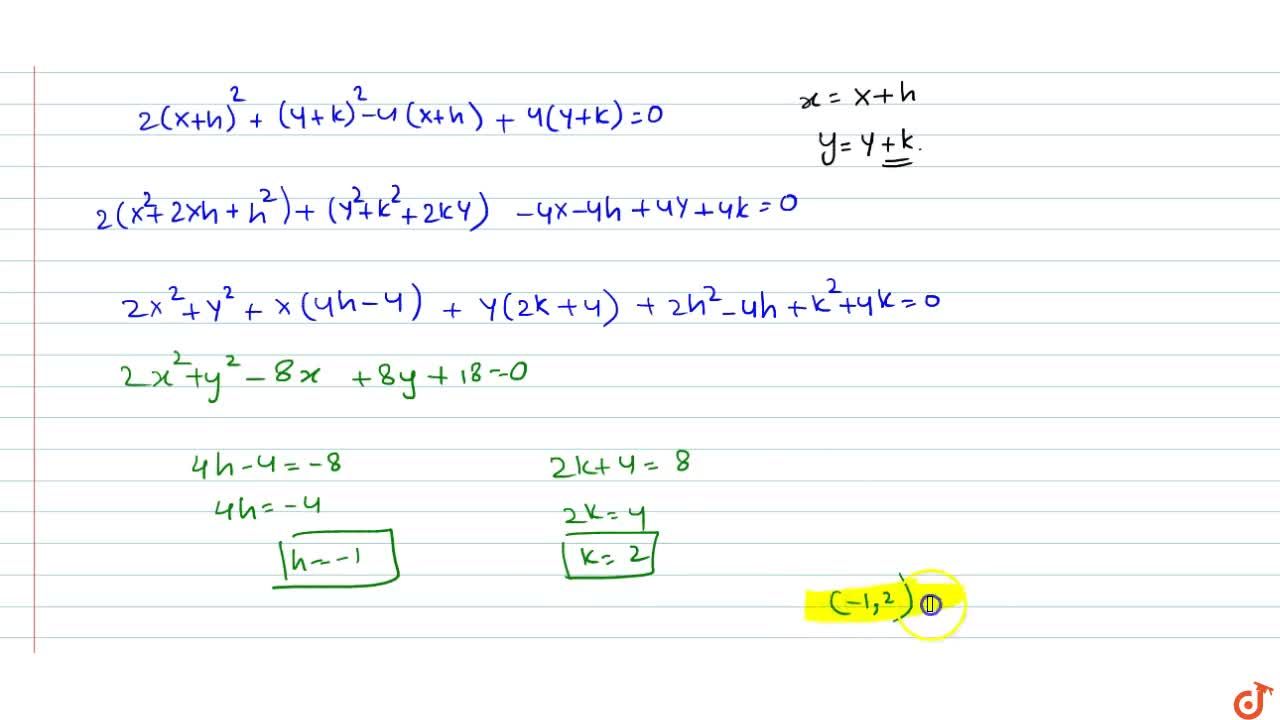 2(x+h)² + (y+k)² - 4(x+h) + 4(y+k) = 0
x = X+h
y = Y+k.
2(x²+ 2xh + h²) + (y²+k²+2ky) - 4x - 4h + 4y + 4k = 0
2x² + y² + x(4h-4) + y(2k+4) + 2h² - 4h + k² + 4k = 0
2x²+y² - 8x + 8y + 18 = 0
4h - 4 = -8
2k + 4 = 8
4h = -4
2k = 4
h = -1
k = 2
(-1, 2)